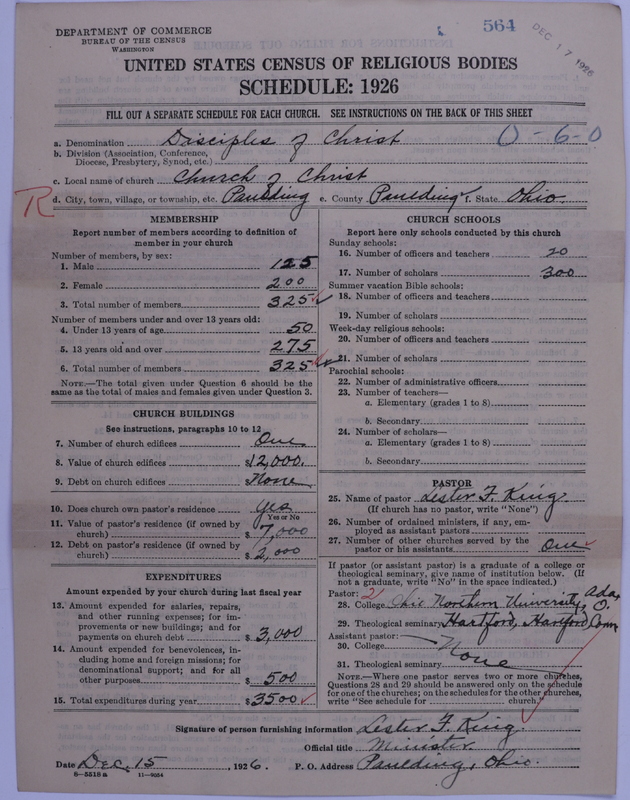 564
DEC 17 1926
DEPARTMENT OF COMMERCE
BUREAU OF THE CENSUS
WASHINGTON
UNITED STATES CENSUS OF RELIGIOUS BODIES
SCHEDULE: 1926
FILL OUT A SEPARATE SCHEDULE FOR EACH CHURCH. SEE INSTRUCTIONS ON THE BACK OF THIS SHEET
a. Denomination Disciples of Christ 0-6-0
b. Division (Association, Conference,
Diocese, Presbytery, Synod, etc.)
c. Local name of church Church of Christ
R d. City, town, village, or township, etc. Paulding e. County Paulding f. State Ohio.
MEMBERSHIP
Report number of members according to definition of
member in your church
Number of members, by sex:
1. Male 125
2. Female 200
3. Total number of members 325
Number of members under and over 13 years old:
4. Under 13 years of age 50
5. 13 years old and over 275
6. Total number of members 325
NOTE.—The total given under Question 6 should be
same as the total of males and females given under Question 3.
CHURCH BUILDINGS
See instructions, paragraphs 10 to 12
7. Number of church edifices One
8. Value of church edifices $12,000.
9. Debt on church edifices None
10. Does church own pastor's residence? Yes
Yes or No
11. Value of pastor's residence (if owned by
church) $7,000
12. Debt on pastor's residence (if owned by
church) $2,000
EXPENDITURES
Amount expended by your church during last fiscal year
13. Amount expended for salaries, repairs,
and other running expenses; for im-
provements or new buildings; and for
payments on church debt $3,000
14. Amount expended for benevolences, in-
cluding home and foreign missions; for
denominational support; and for all
other purposes $500
15. Total expenditures during year $3500
CHURCH SCHOOLS
Report here only schools conducted by this church
Sunday schools:
16. Number of officers and teachers 20
17. Number of scholars 300
Summer vacation Bible schools:
18. Number of officers and teachers
19. Number of scholars
Week-day religious schools:
20. Number of officers and teachers
21. Number of scholars
Parochial schools:
22. Number of administrative officers
23. Number of teachers—
a. Elementary (grades 1 to 8)
b. Secondary
24. Number of scholars—
a. Elementary (grades 1 to 8)
b. Secondary
PASTOR
25. Name of pastor Lester F. King
(If church has no pastor, write "None")
26. Number of ordained ministers, if any, em-
ployed as assistant pastors
27. Number of other churches served by the
pastor or his assistants One
If pastor (or assistant pastor) is a graduate of a college or
theological seminary, give name of institution below. (If
not a graduate, write "No" in the space indicated.)
Pastor: 21
28. College Ohio Northern University, Ada, O.
29. Theological seminary Hartford, Hartford Conn
Assistant pastor:
30. College None
31. Theological seminary
NOTE.—Where one pastor serves two or more churches,
Questions 28 and 29 should be answered only on the schedule
for one of the churches; on the schedules for the other churches,
write "See schedule for church."
Signature of person furnishing information Lester F. King
Official title Minister
Date Dec. 15, 1926. P. O. Address Paulding, Ohio.
8—5518a 11—9054